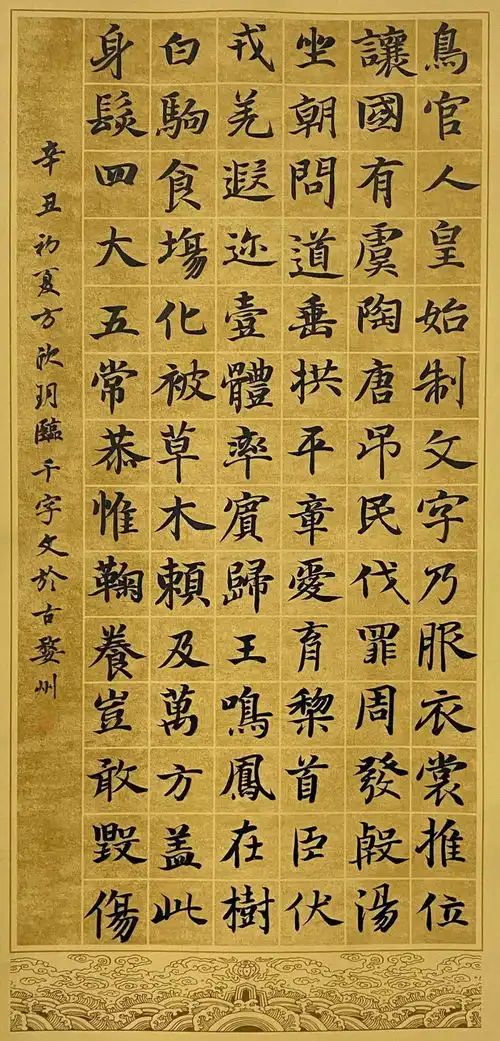 鳥官人皇始制文字乃服衣裳推位
讓國有虞陶唐吊民伐罪周發殷湯
坐朝問道垂拱平章愛育黎首臣伏
戎羌遐迩壹體率賓歸王鳴鳳在樹
白駒食場化被草木賴及萬方盖此
身髮四大五常恭惟鞠養豈敢毀傷
辛丑初夏方欣玥臨千字文於古婺州